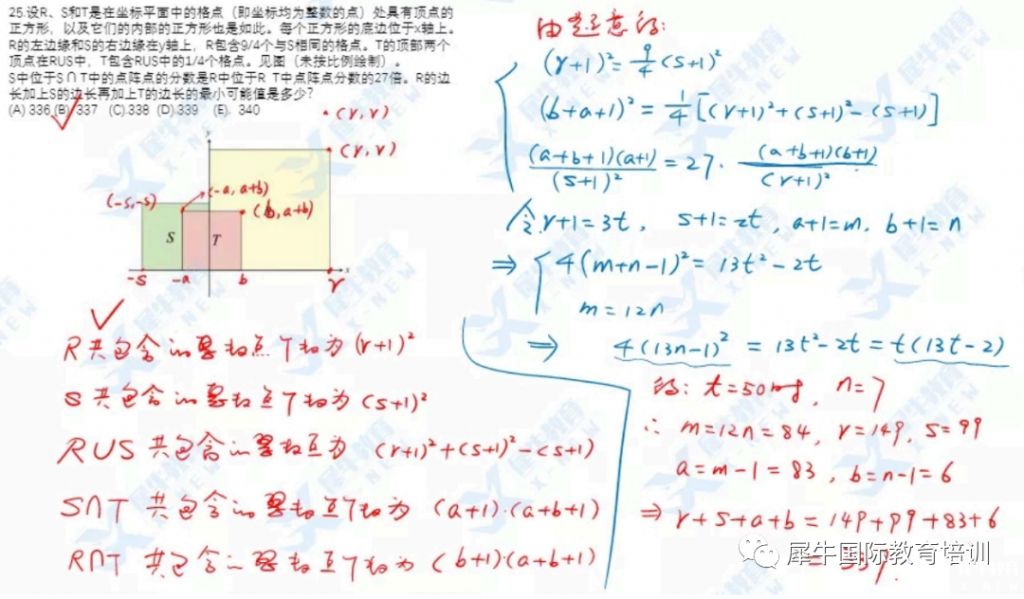 25.设R、S和T是在坐标平面中的格点（即坐标均为整数的点）处具有顶点的
正方形，以及它们的内部的正方形也是如此。每个正方形的底边位于x轴上。
R的左边缘和S的右边缘在y轴上，R包含9/4个与S相同的格点。T的顶部两个
顶点在RUS中，T包含RUS中的1/4个格点。见图（未按比例绘制）.
S中位于S∩T中的点阵点的分数是R中位于R T中点阵点分数的27倍。R的边
长加上S的边长再加上T的边长的最小可能值是多少?
(A) 336 (B) 337 (C).338 (D) 339 (E). 340
(r,r)
(r,r)
(-a, a+b)
(-s,-s)
(b, a+b)
S
T
-s
-a
b
x
r
y
R共包含的整格点个数为 (r+1)²
S共包含的整格点个数为 (s+1)²
RUS 共包含的整格点为 (r+1)²+(s+1)²-(s+1)
S∩T 共包含的整格点个数为 (a+1)·(a+b+1)
R∩T 共包含的整格点个数为 (b+1)(a+b+1)
由题意得:
(r+1)²=9/4(s+1)²
(b+a+1)²=1/4[(r+1)²+(s+1)²-(s+1)]
(a+b+1)(a+1)/(s+1)²=27·(a+b+1)(b+1)/(r+1)²
令r+1=3t, s+1=2t, a+1=m. b+1=n
⇒ 4(m+n-1)²=13t²-2t
m=12n
⇒ 4(13n-1)²=13t²-2t=t(13t-2)
得: t=50时, n=7
∴ m=12n=84, r=149, s=99
a=m-1=83, b=n-1=6
⇒ r+s+a+b=149+99+83+6
=337.
犀牛国际教育培训
犀牛教育
X-NEW